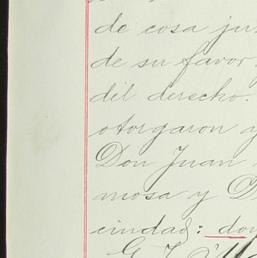 de cosa ju
de su favor
del derecho.
otorgaron y
Don Juan
mosa y D
ciudad: don